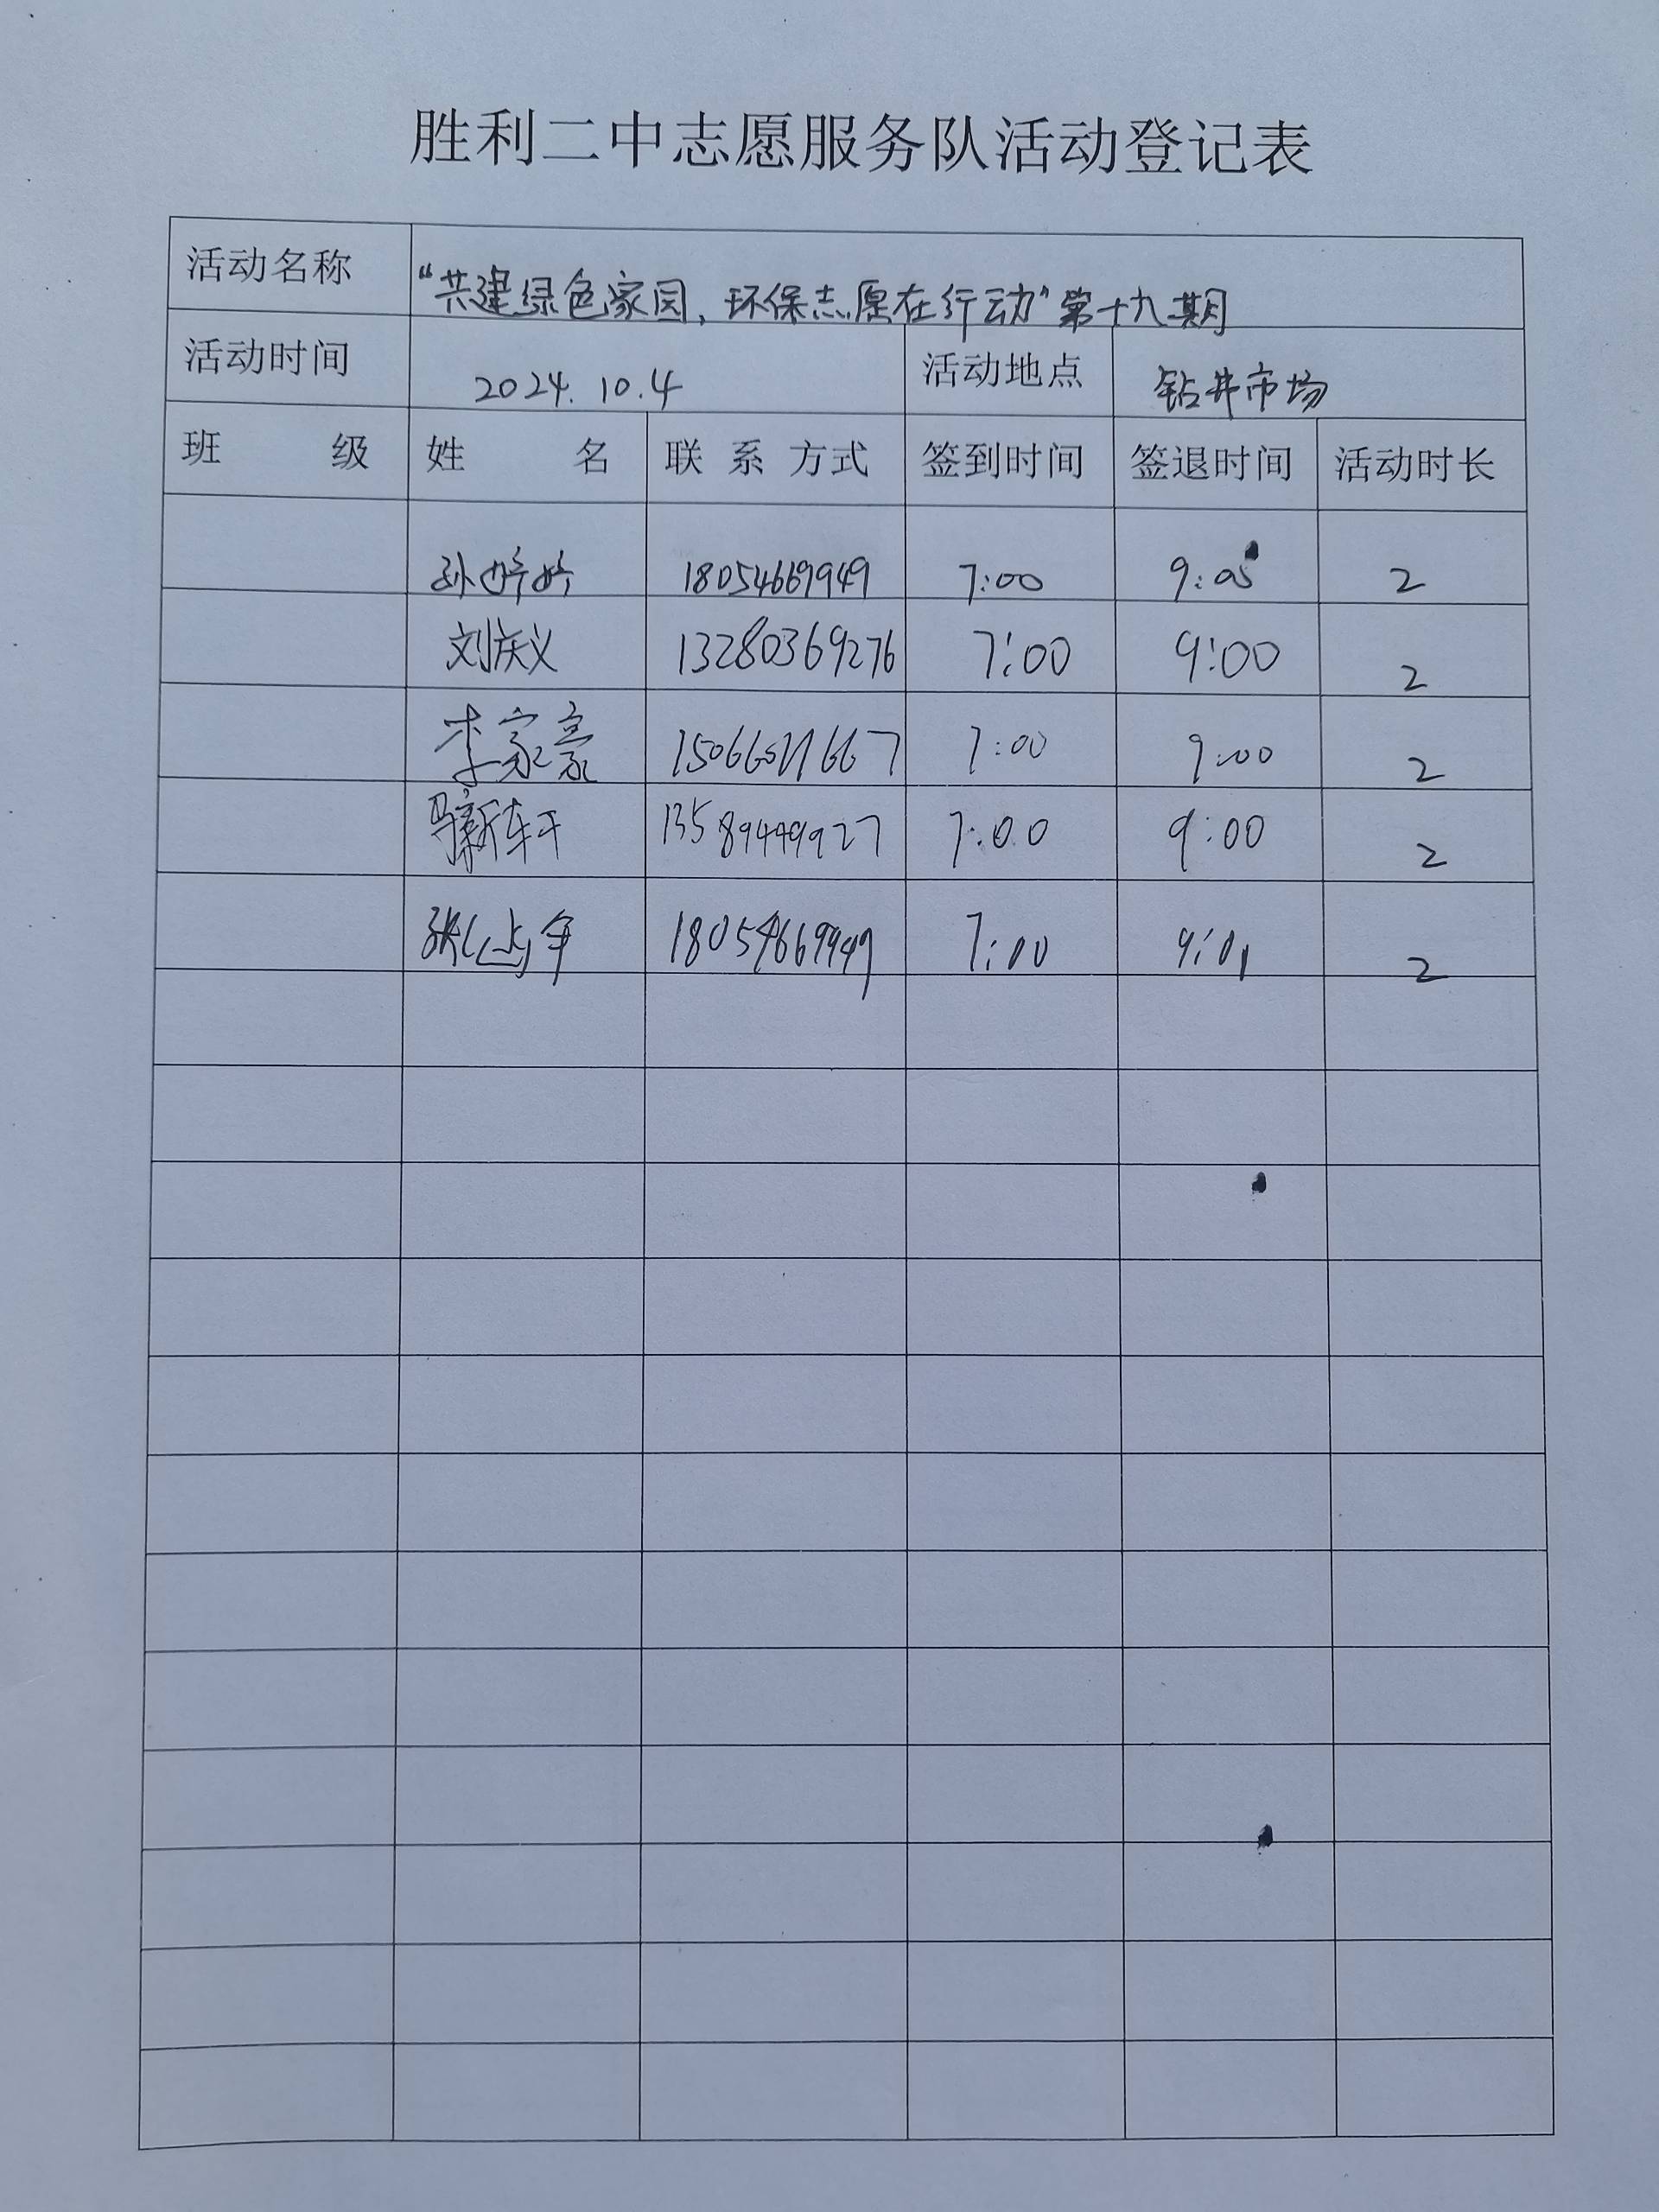 胜利二中志愿服务队活动登记表
活动名称 “共建绿色家园、环保志愿在行动”第十九期
活动时间 2024.10.4 活动地点 钻井市场
班 级 姓 名 联系方式 签到时间 签退时间 活动时长
孙婷婷 18054669949 7:00 9:05 2
刘庆义 13280369276 7:00 9:00 2
李家豪 7:00 9:00 2
马新轩 13589449927 7:00 9:00 2
18054669949 7:00 9:01 2